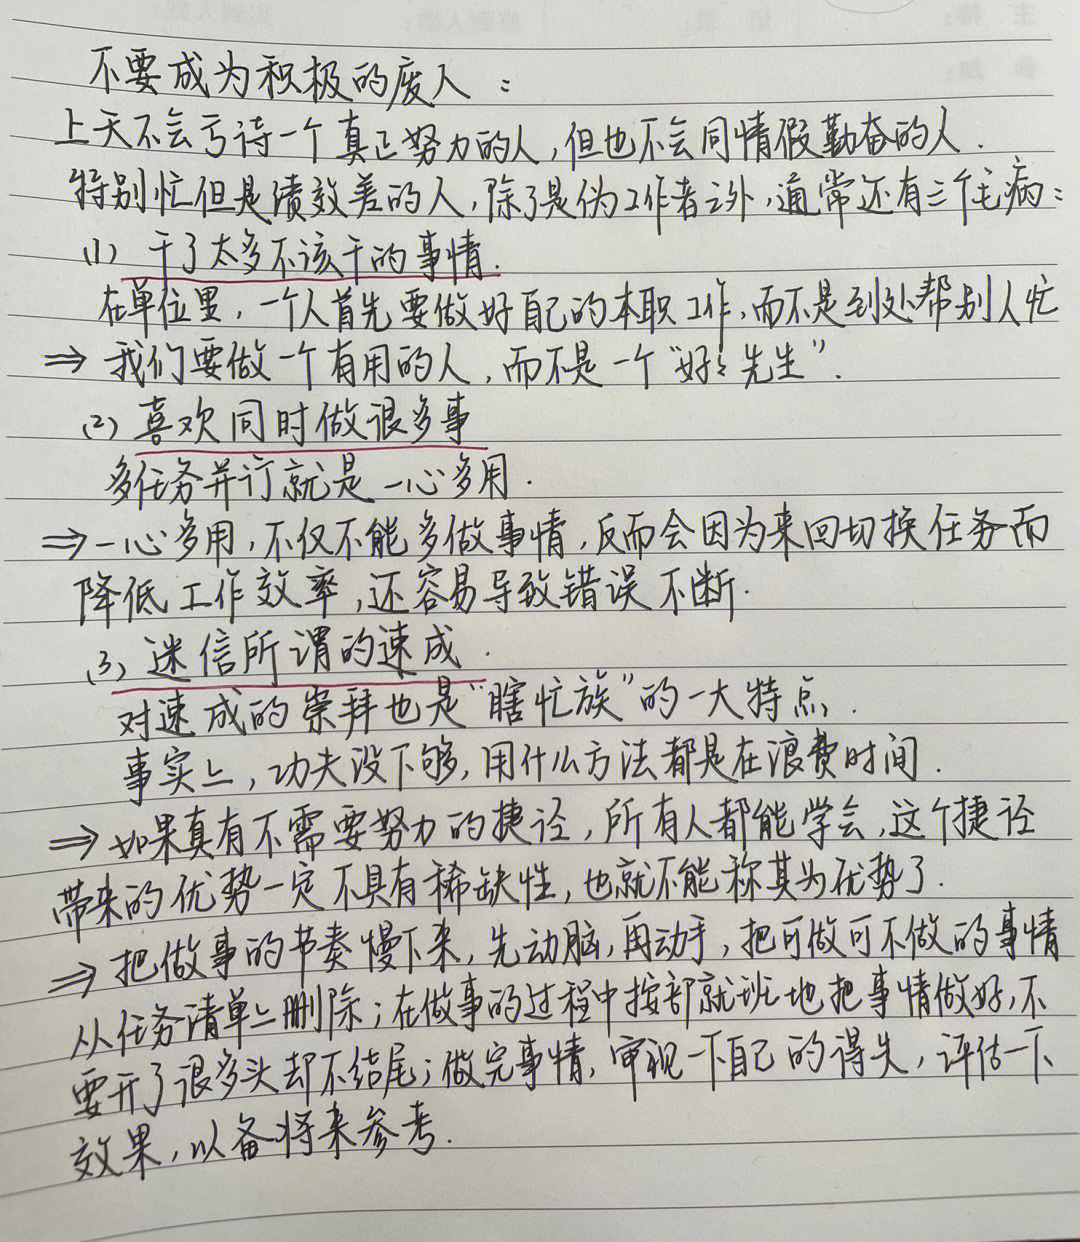 不要成为积极的废人：
上天不会亏待一个真正努力的人,但也不会同情假勤奋的人.
特别忙但是绩效差的人,除了是伪工作者之外,通常还有三个毛病:
(1) 干了太多不该干的事情.
在单位里,一个人首先要做好自己的本职工作,而不是到处帮别人忙
⇒ 我们要做一个有用的人,而不是一个“好々先生”.
(2) 喜欢同时做很多事
多任务并行就是一心多用.
⇒一心多用,不仅不能多做事情,反而会因为来回切换任务而
降低工作效率,还容易导致错误不断.
(3) 迷信所谓的速成.
对速成的崇拜也是“瞎忙族”的一大特点.
事实上,功夫没下够,用什么方法都是在浪费时间.
⇒如果真有不需要努力的捷径,所有人都能学会,这个捷径
带来的优势一定不具有稀缺性,也就不能称其为优势了.
⇒ 把做事的节奏慢下来,先动脑,再动手,把可做可不做的事情
从任务清单上删除;在做事的过程中按部就班地把事情做好,不
要开了很多头却不结尾;做完事情,审视一下自己的得失,评估一下
效果,以备将来参考.
主 持:
记 录:
参 加: